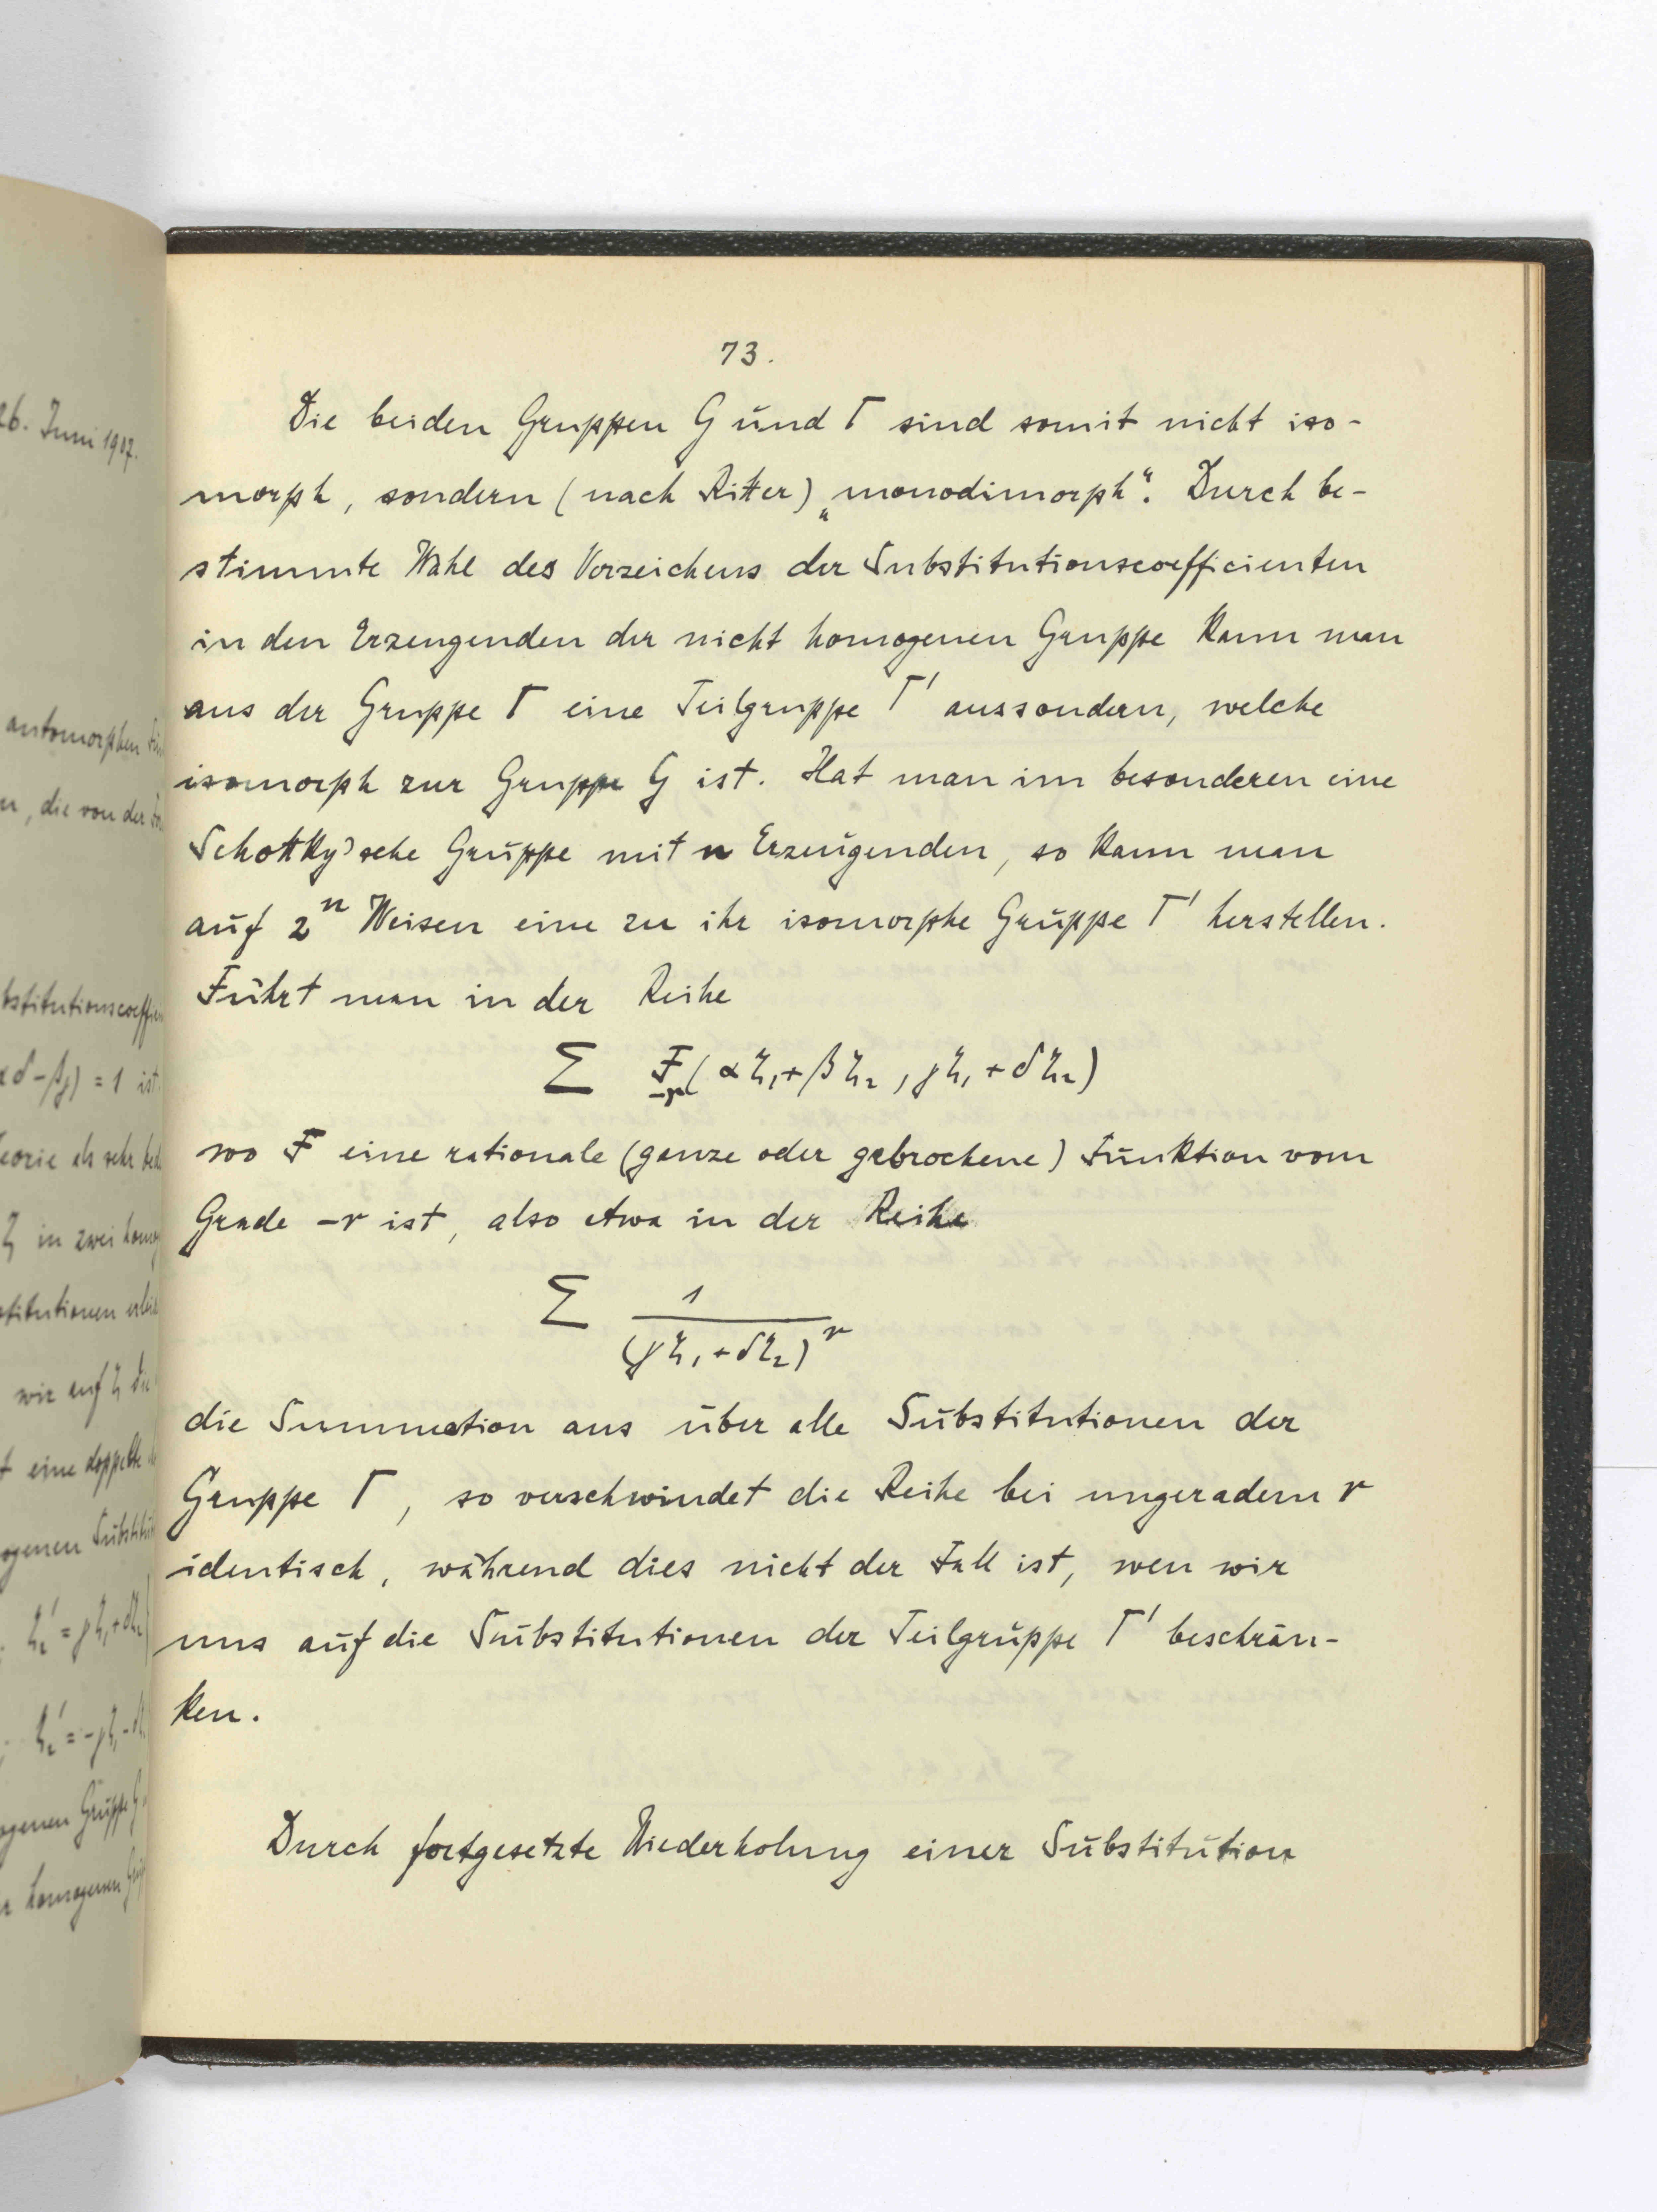 26. Juni 1907.
automorphen
, die von der
bstitutionscoeffi
αδ - βγ) = 1 ist.
eorie als sehr
ζ in zwei homo
stitutionen
wir auf ζ die
t eine doppelte
ogenen Substitu
ζ₂' = γζ₁ + δζ₂
ζ₂' = -γζ₁ - δ
ogenen Gruppe G
homogenen
73.
Die beiden Gruppen G und Γ sind somit nicht iso-
morph, sondern (nach Ritter) „monodimorph“. Durch be-
stimmte Wahl des Vorzeichens der Substitutionscoefficienten
in den Erzeugenden der nicht homogenen Gruppe kann man
aus der Gruppe Γ eine Teilgruppe Γ' aussondern, welche
isomorph zur Gruppe G ist. Hat man im besonderen eine
Schottky'sche Gruppe mit n Erzeugenden, so kann man
auf 2ⁿ Weisen eine zu ihr isomorphe Gruppe Γ' herstellen.
Führt man in der Reihe
Σ F₋ᵣ(αζ₁ + βζ₂, γζ₁ + δζ₂)
wo F eine rationale (ganze oder gebrochene) Funktion vom
Grade -r ist, also etwa in der Reihe
Σ 1/(γζ₁ + δζ₂)^r
die Summation aus über alle Substitutionen der
Gruppe Γ, so verschwindet die Reihe bei ungeradem r
identisch, während dies nicht der Fall ist, wen wir
uns auf die Substitutionen der Teilgruppe Γ' beschrän-
ken.
Durch fortgesetzte Wiederholung einer Substitution